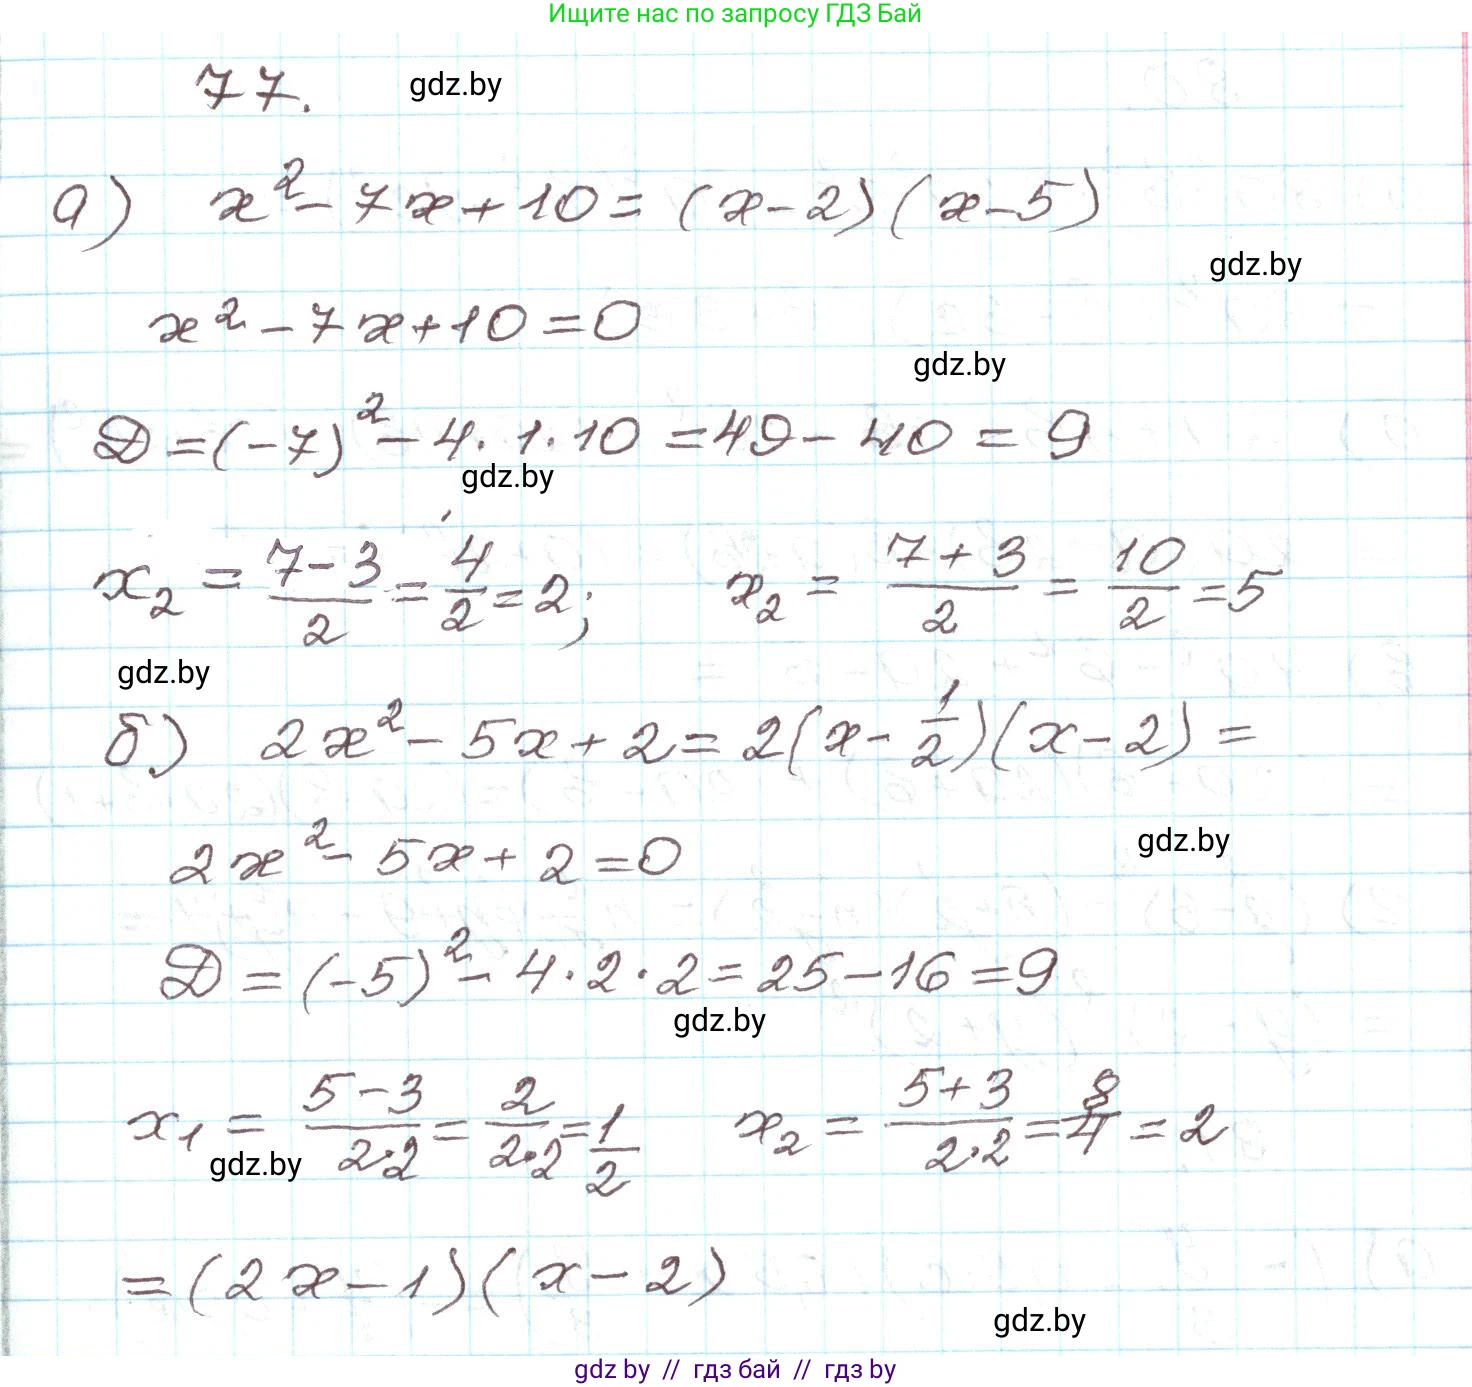 Ищите нас по запросу ГДЗ Бай
77. gdz.by
а) x² - 7x + 10 = (x - 2)(x - 5)
gdz.by
x² - 7x + 10 = 0
gdz.by
D = (-7)² - 4 · 1 · 10 = 49 - 40 = 9
gdz.by
x₂ = (7 - 3)/2 = 4/2 = 2; x₂ = (7 + 3)/2 = 10/2 = 5
gdz.by
б) 2x² - 5x + 2 = 2(x - 1/2)(x - 2) =
gdz.by
2x² - 5x + 2 = 0
D = (-5)² - 4 · 2 · 2 = 25 - 16 = 9
gdz.by
x₁ = (5 - 3)/(2·2) = 2/(2·2) = 1/2 x₂ = (5 + 3)/(2·2) = 8/4 = 2
gdz.by
= (2x - 1)(x - 2)
gdz.by
gdz.by // гдз бай // гдз by